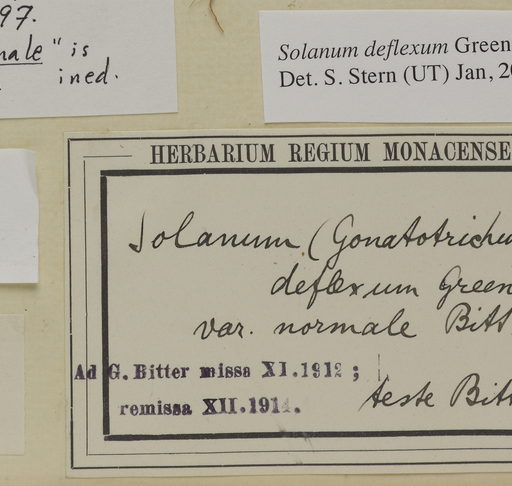 97.
male" is
ined.
Solanum deflexum Green
Det. S. Stern (UT) Jan, 20
HERBARIUM REGIUM MONACENSE
Solanum (Gonatotrichu
deflexum Green
var. normale Bitt
Ad G. Bitter missa XI.1912;
remissa XII.1914.
teste Bitt